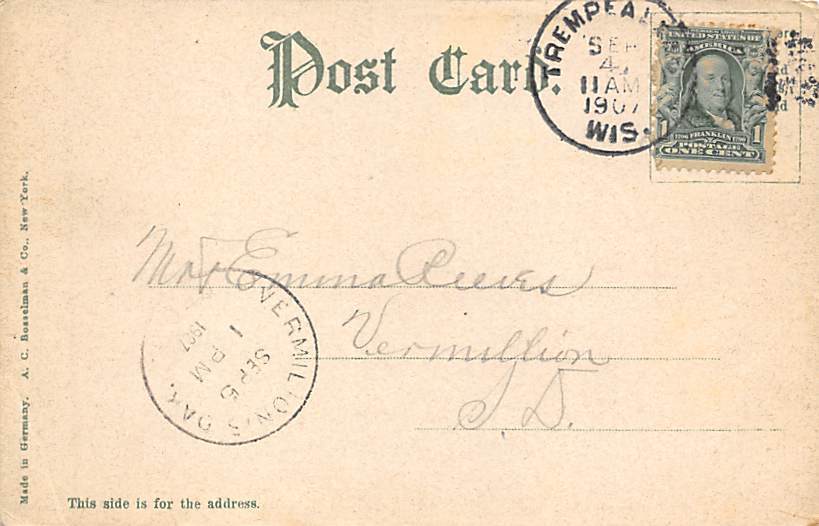 Post Card.
TREMPEAL
SEP
4
11 AM
1907
WIS.
SERIES 1902
UNITED STATES OF
AMERICA
1706 FRANKLIN 1790
1 1
POSTAGE
ONE CENT
Made in Germany. A. C. Bosselman & Co., New York.
Emma Reeves
Vermillion
S. D.
VERMILLION, S. DAK.
1
SEP 5
PM
1907
This side is for the address.